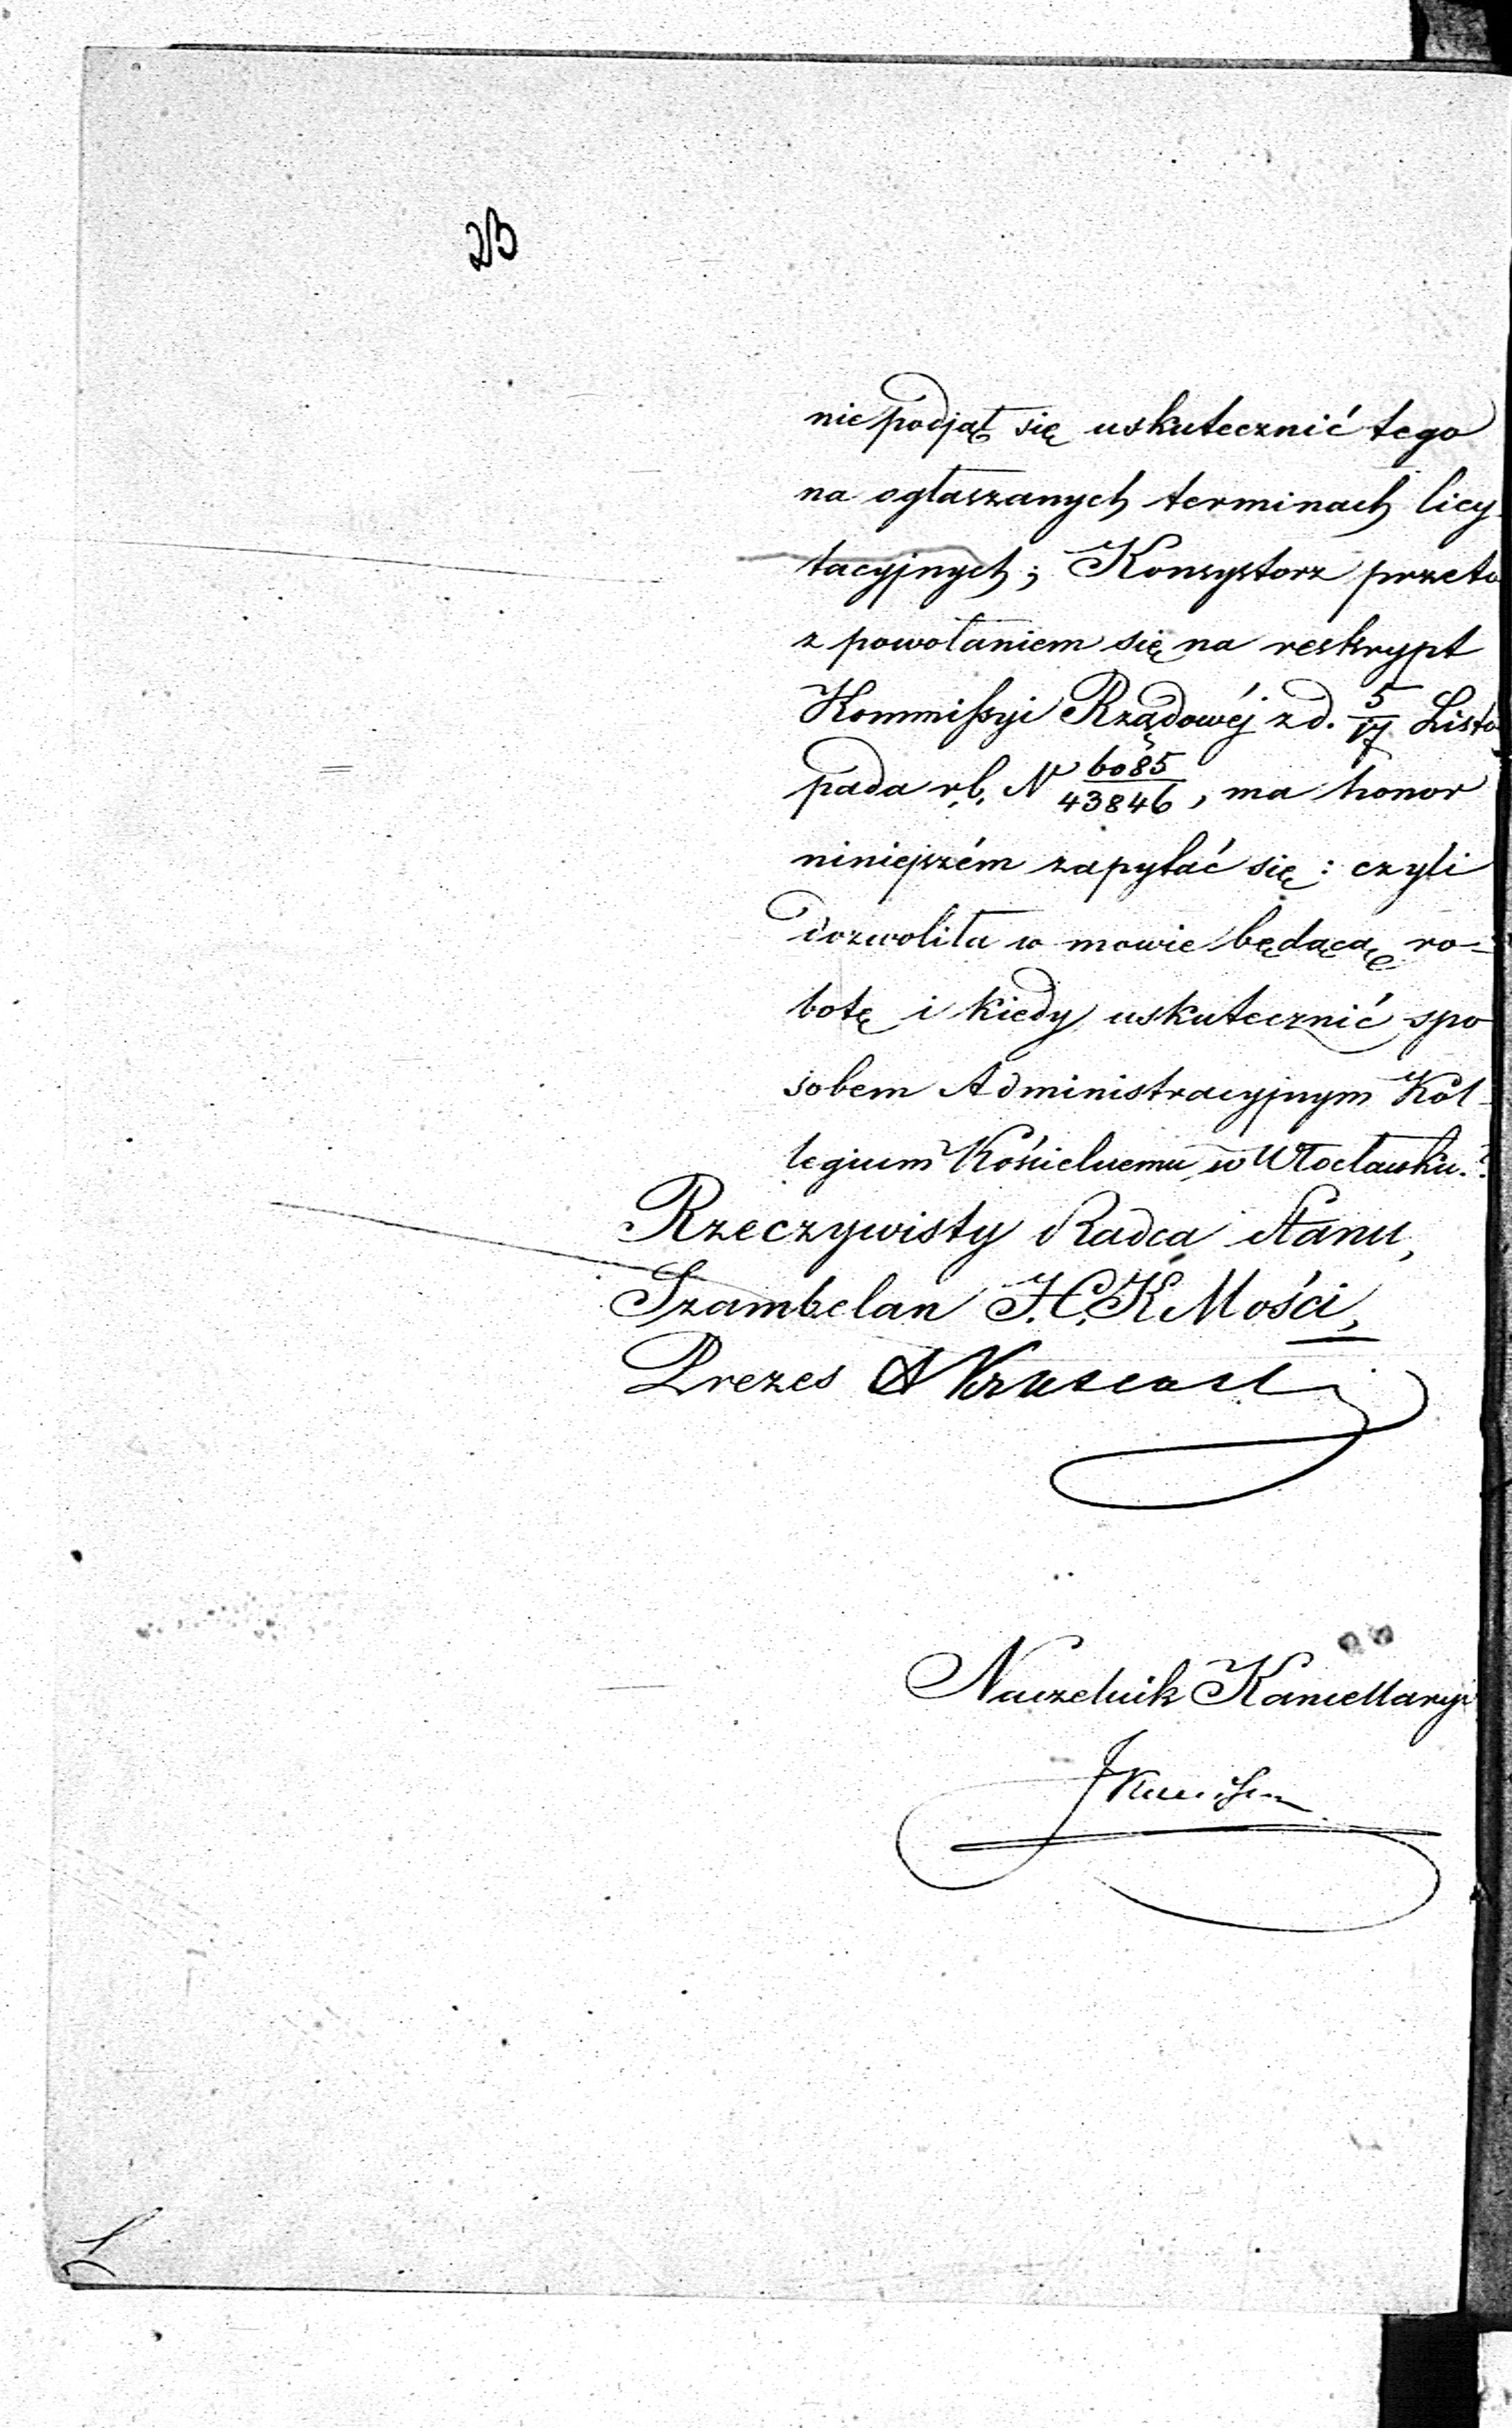 nie podjął się uskutecznić tego
na ogłaszanych terminach licy-
tacyjnych; Konsystorz przeto
z powołaniem się na reskrypt
Kommissyi Rządowéj z d. 5/17 Listo
pada r.b. N 6085/43846, ma honor
niniejszém zapytać się: czyli
dozwoliła w mowie będącą ro-
botę i kiedy uskutecznić spo
sobem Administracyjnym Kol-
legium Kościelnemu w Włocławku.?
Rzeczywisty Radca Stanu,
Szambelan J.C.K Mości,
Prezes
Naczelnik Kancellaryi